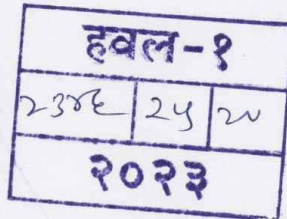 हवल-१
२३४६ २५
२०२३